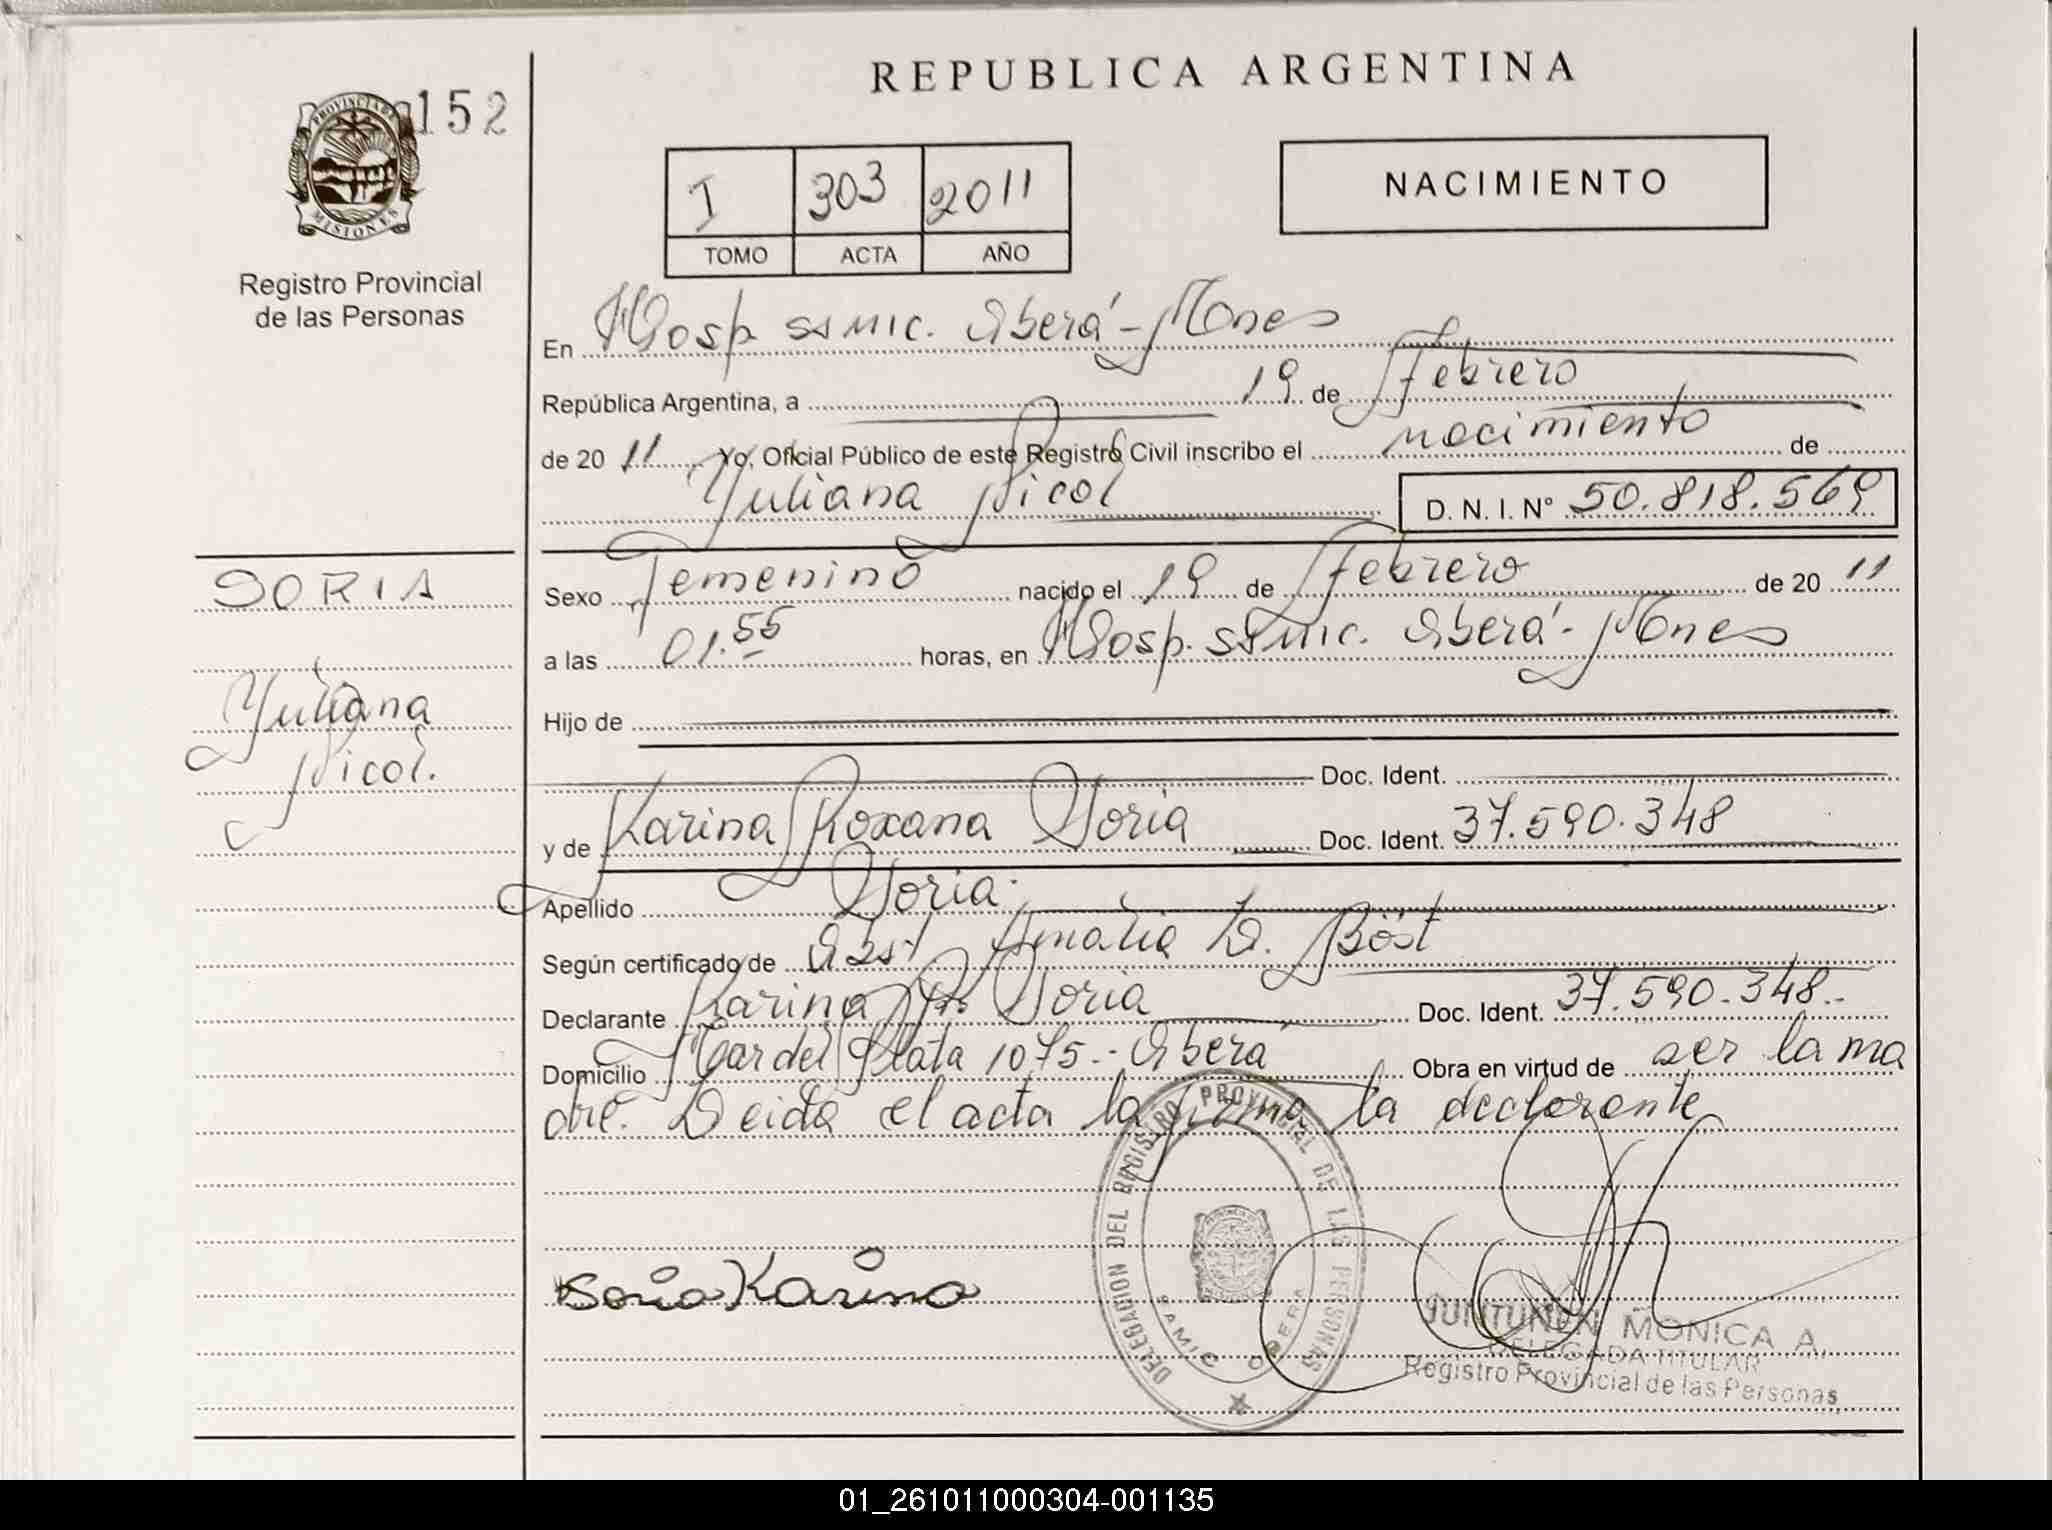 REPUBLICA ARGENTINA
152
PROVINCIA DE
MISIONES
Registro Provincial
de las Personas
I 303 2011
TOMO ACTA AÑO
NACIMIENTO
En Hosp. ssmic. Oberá - Mones
República Argentina, a 19 de Febrero
de 20 11 Yo, Oficial Público de este Registro Civil inscribo el nacimiento de
Yuliana Nicol D. N. I. Nº 50.818.569
SORIA
Yuliana
Nicol.
Sexo Femenino nacido el 19 de Febrero de 20 11
a las 01.55 horas, en Hosp. ssmic. Oberá - Mones
Hijo de
Doc. Ident.
y de Karina Roxana Soria Doc. Ident. 37.590.348
Apellido Soria.
Según certificado de Obst Amalia D. Böst
Declarante Karina R. Soria Doc. Ident. 37.590.348.-
Domicilio Mar del Plata 1075.- Oberá Obra en virtud de ser la ma
dre. Leida el acta la firma la declarante
Soria Karina
DELEGACION DEL REGISTRO PROVINCIAL DE LAS PERSONAS
SAMIC OBERA
JUNTUNEN MONICA A.
DELEGADA TITULAR
Registro Provincial de las Personas
01_261011000304-001135